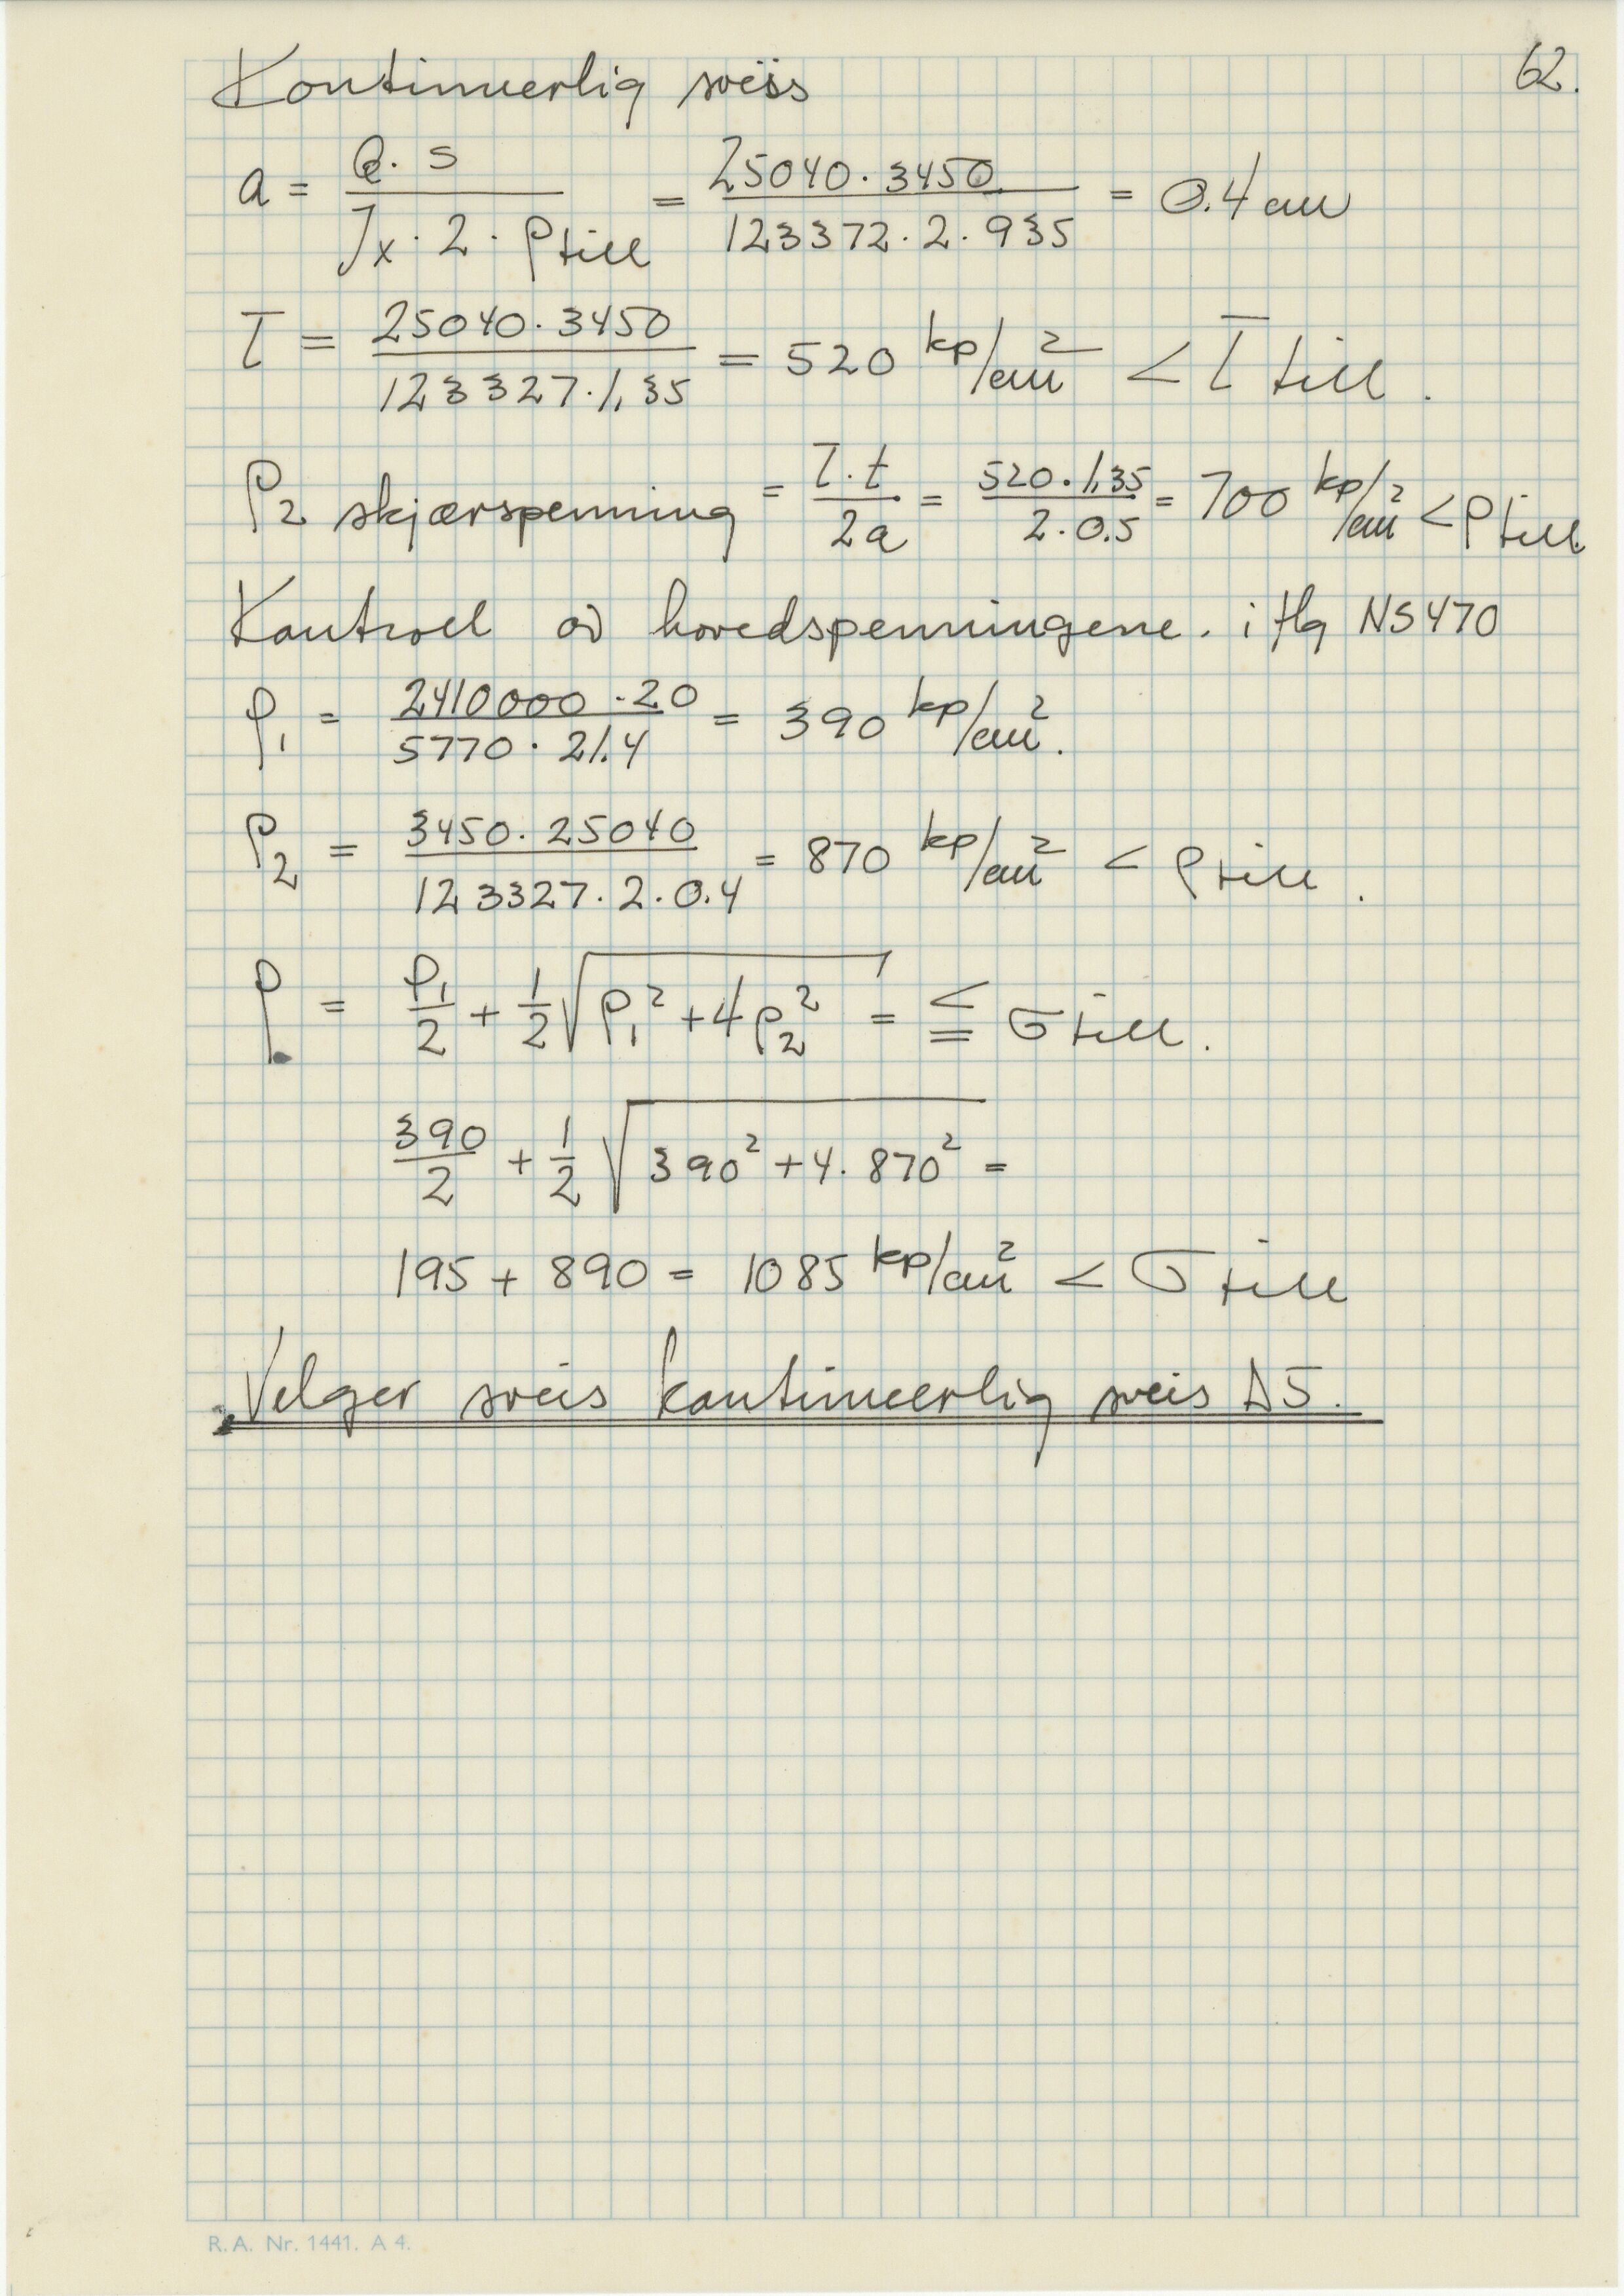 62.
Kontinuerlig sveis
a = Q · s / Jx · 2 · ρtill = 25040 · 3450 / 123372 · 2 · 935 = 0.4 cm
τ = 25040 · 3450 / 123327 · 1,35 = 520 kp/cm² < τ till.
ρ2 skjærspenning = τ · t / 2a = 520 · 1,35 / 2 · 0.5 = 700 kp/cm² < ρ till
Kontroll av hovedspenningene. i flg NS470
ρ1 = 2410000 · 20 / 5770 · 21.4 = 390 kp/cm².
ρ2 = 3450 · 25040 / 123327 · 2 · 0.4 = 870 kp/cm² < ρ till.
ρ = ρ1/2 + 1/2 √ρ1² + 4ρ2² = ≤ σ till.
390/2 + 1/2 √390² + 4 · 870² =
195 + 890 = 1085 kp/cm² < σ till
Velger sveis kontinuerlig sveis Δ5.
R.A. Nr. 1441. A 4.